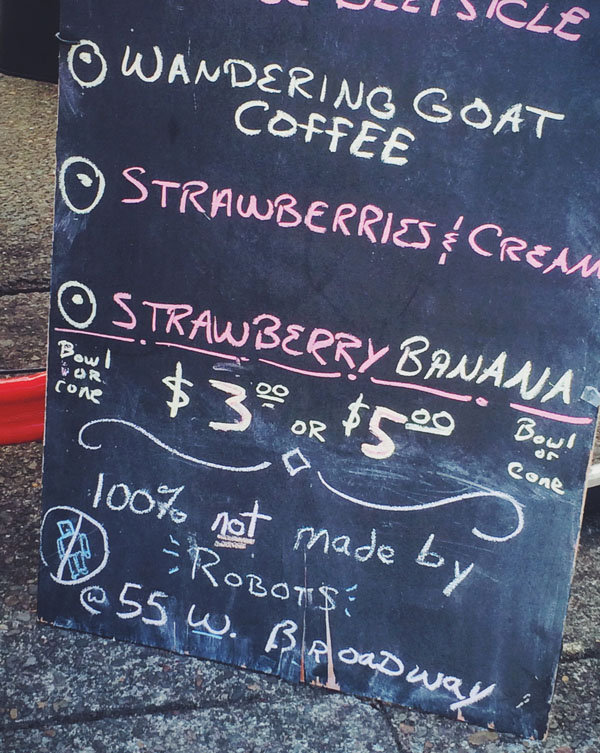 WANDERING GOAT
COFFEE
STRAWBERRIES & CREAM
STRAWBERRY BANANA
Bowl
OR
cone
$3 00 OR $5 00
Bowl
or
cone
100% not made by
ROBOTS
@ 55 W. BROADWAY